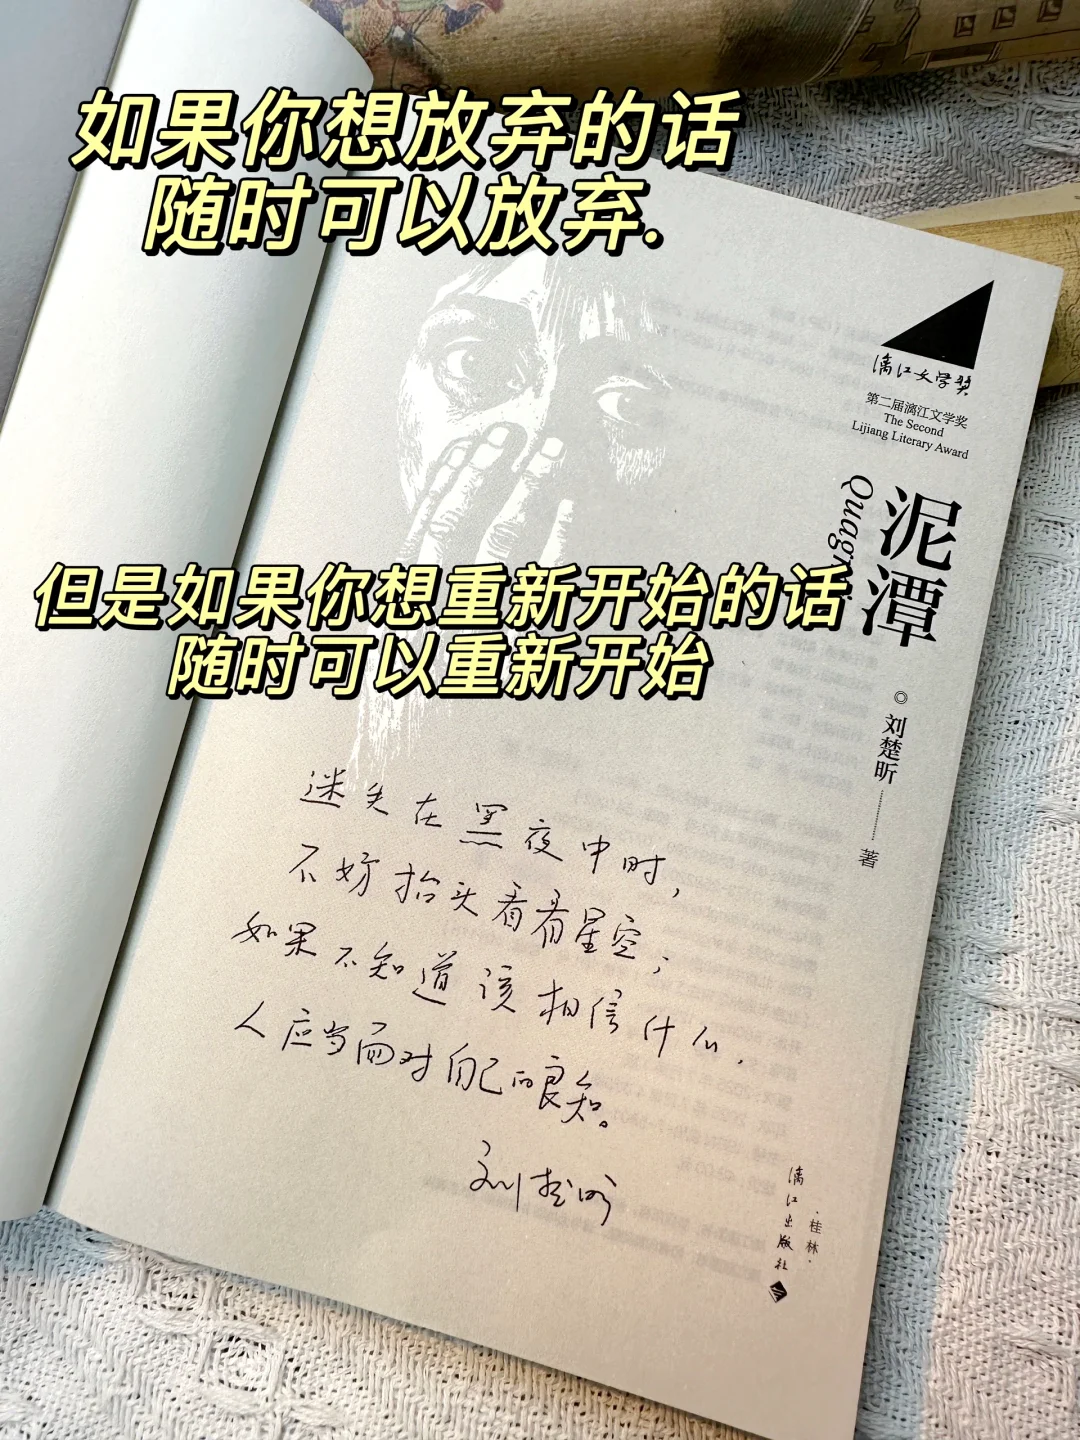 如果你想放弃的话
随时可以放弃.
漓江文学奖
第二届漓江文学奖
The Second
Lijiang Literary Award
泥潭
但是如果你想重新开始的话
随时可以重新开始
◎刘楚昕
著
迷失在黑夜中时，
不妨抬头看看星空；
如果不知道该相信什么，
人应当面对自己的良知。
刘楚昕
漓江出版社
·桂林·